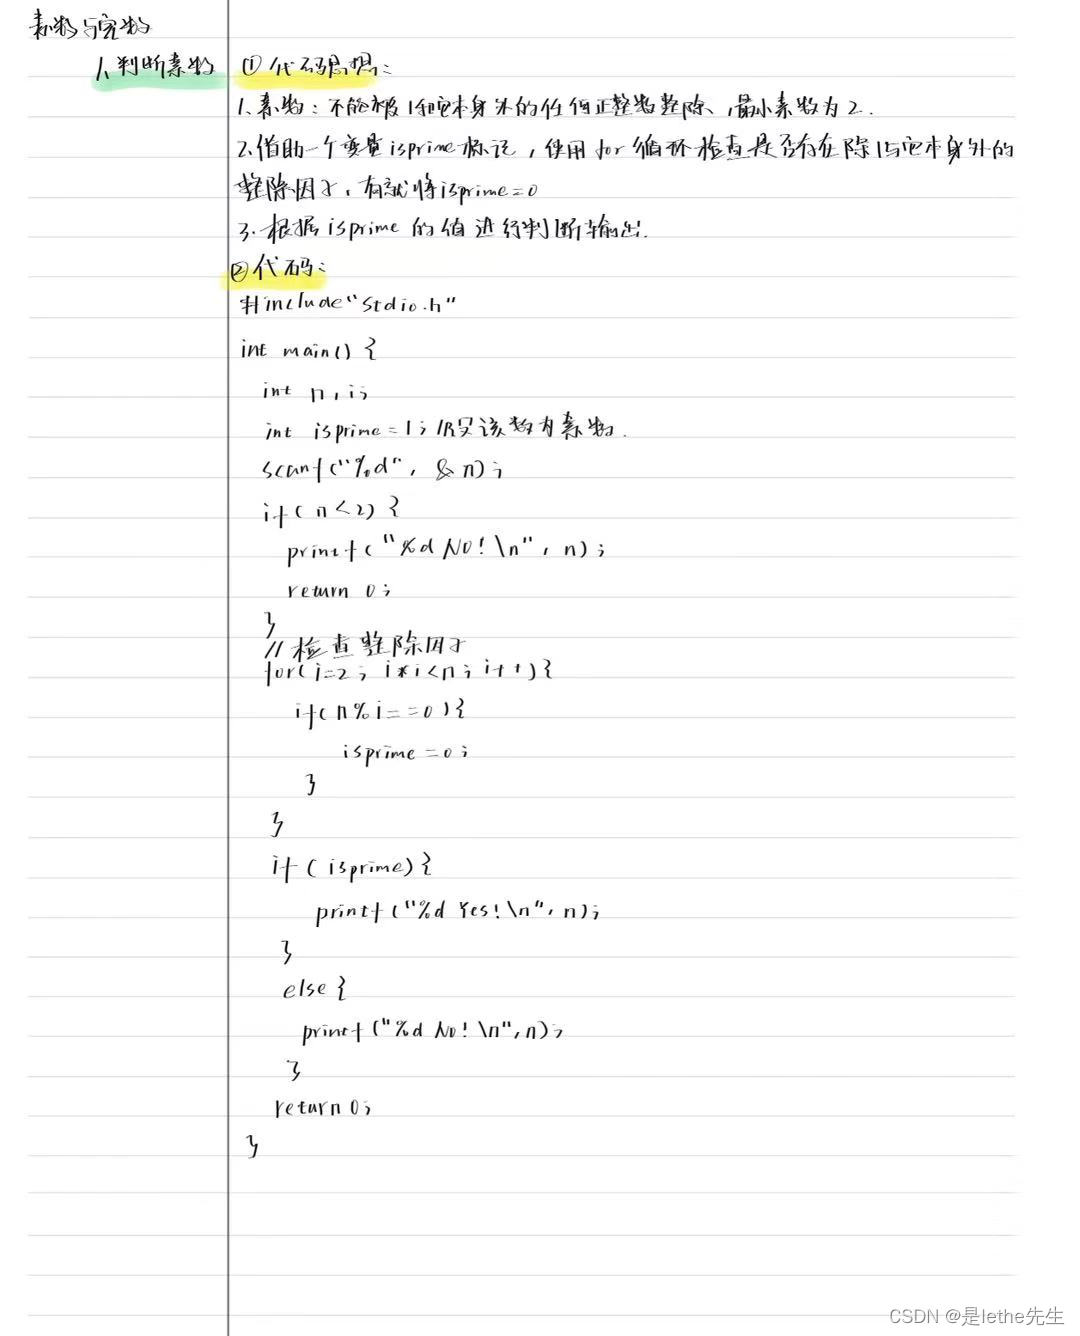 素数与完数
1.判断素数
① 代码思想:
1.素数:不能被1和它本身外的任何正整数整除,最小素数为2.
2.借助一个变量isprime标记,使用for循环检查是否存在除1与它本身外的
整除因子,有就将isprime=0
3.根据isprime的值进行判断输出.
②代码:
#include"stdio.h"
int main() {
int n,i;
int isprime=1;假设该数为素数.
scanf("%d", &n);
if(n<2) {
printf("%d No!\n", n);
return 0;
}
//检查整除因子
for(i=2; i*i<n; i++){
if(n%i==0){
isprime=0;
}
}
if(isprime){
printf("%d Yes!\n", n);
}
else{
printf("%d No!\n",n);
}
return 0;
}
CSDN @是lethe先生